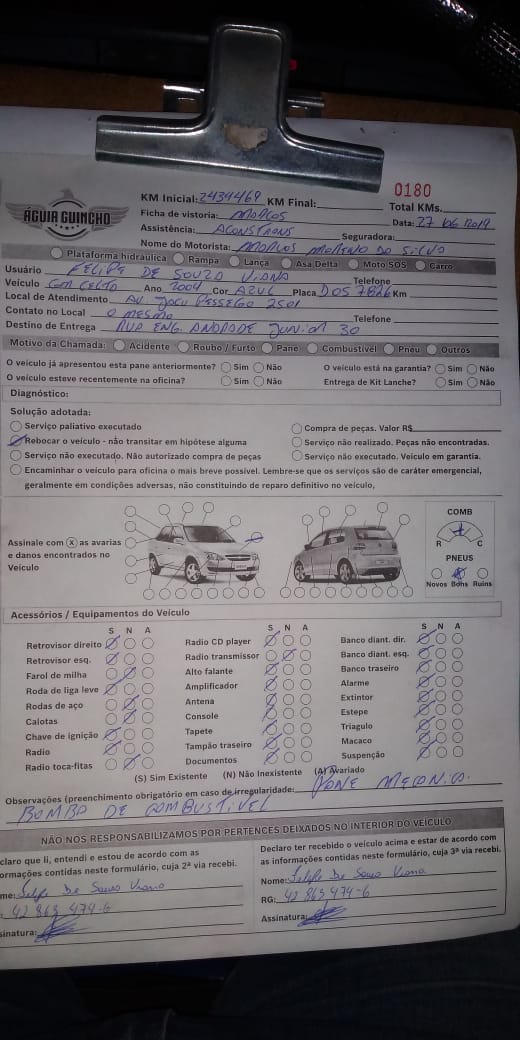 0180
ÁGUIA GUINCHO
KM Inicial: 2434469 KM Final: Total KMs.
Ficha de vistoria: MARCOS Data: 27 06 2019
Assistência: Seguradora:
Nome do Motorista: MARCOS MORENO DA SILVA
Plataforma hidráulica Rampa Lança Asa Delta Moto SOS Carro
Usuário FELIPE DE SOUZA VIANA Telefone
Veículo GM CELTA Ano 2004 Cor AZUL Placa DOS 7826 Km
Local de Atendimento AV. JACU PESSEGO 2501
Contato no Local O MESMO Telefone
Destino de Entrega RUA ENG. ANDRADE JUNIOR 30
Motivo da Chamada: Acidente Roubo / Furto Pane Combustível Pneu Outros
O veículo já apresentou esta pane anteriormente? Sim Não O veículo está na garantia? Sim Não
O veículo esteve recentemente na oficina? Sim Não Entrega de Kit Lanche? Sim Não
Diagnóstico:
Solução adotada:
Serviço paliativo executado Compra de peças. Valor R$
Rebocar o veículo - não transitar em hipótese alguma Serviço não realizado. Peças não encontradas.
Serviço não executado. Não autorizado compra de peças Serviço não executado. Veículo em garantia.
Encaminhar o veículo para oficina o mais breve possível. Lembre-se que os serviços são de caráter emergencial,
geralmente em condições adversas, não constituindo de reparo definitivo no veículo,
Assinale com X as avarias
e danos encontrados no
Veículo
COMB
R C
PNEUS
Novos Bons Ruins
Acessórios / Equipamentos do Veículo
S N A S N A S N A
Retrovisor direito Radio CD player Banco diant. dir.
Retrovisor esq. Radio transmissor Banco diant. esq.
Farol de milha Alto falante Banco traseiro
Roda de liga leve Amplificador Alarme
Rodas de aço Antena Extintor
Calotas Console Estepe
Chave de ignição Tapete Triagulo
Radio Tampão traseiro Macaco
Radio toca-fitas Documentos Suspenção
(S) Sim Existente (N) Não Inexistente (A) Avariado
Observações (preenchimento obrigatório em caso de irregularidade: PANE MECANICA.
BOMBA DE COMBUSTIVEL
NÃO NOS RESPONSABILIZAMOS POR PERTENCES DEIXADOS NO INTERIOR DO VEÍCULO
claro que li, entendi e estou de acordo com as
ormações contidas neste formulário, cuja 2ª via recebi.
me: Felipe De Souza Viana
: 42 863 474-6
sinatura:
Declaro ter recebido o veículo acima e estar de acordo com
as informações contidas neste formulário, cuja 3ª via recebi.
Nome: Felipe De Souza Viana
RG: 42 863 474-6
Assinatura: